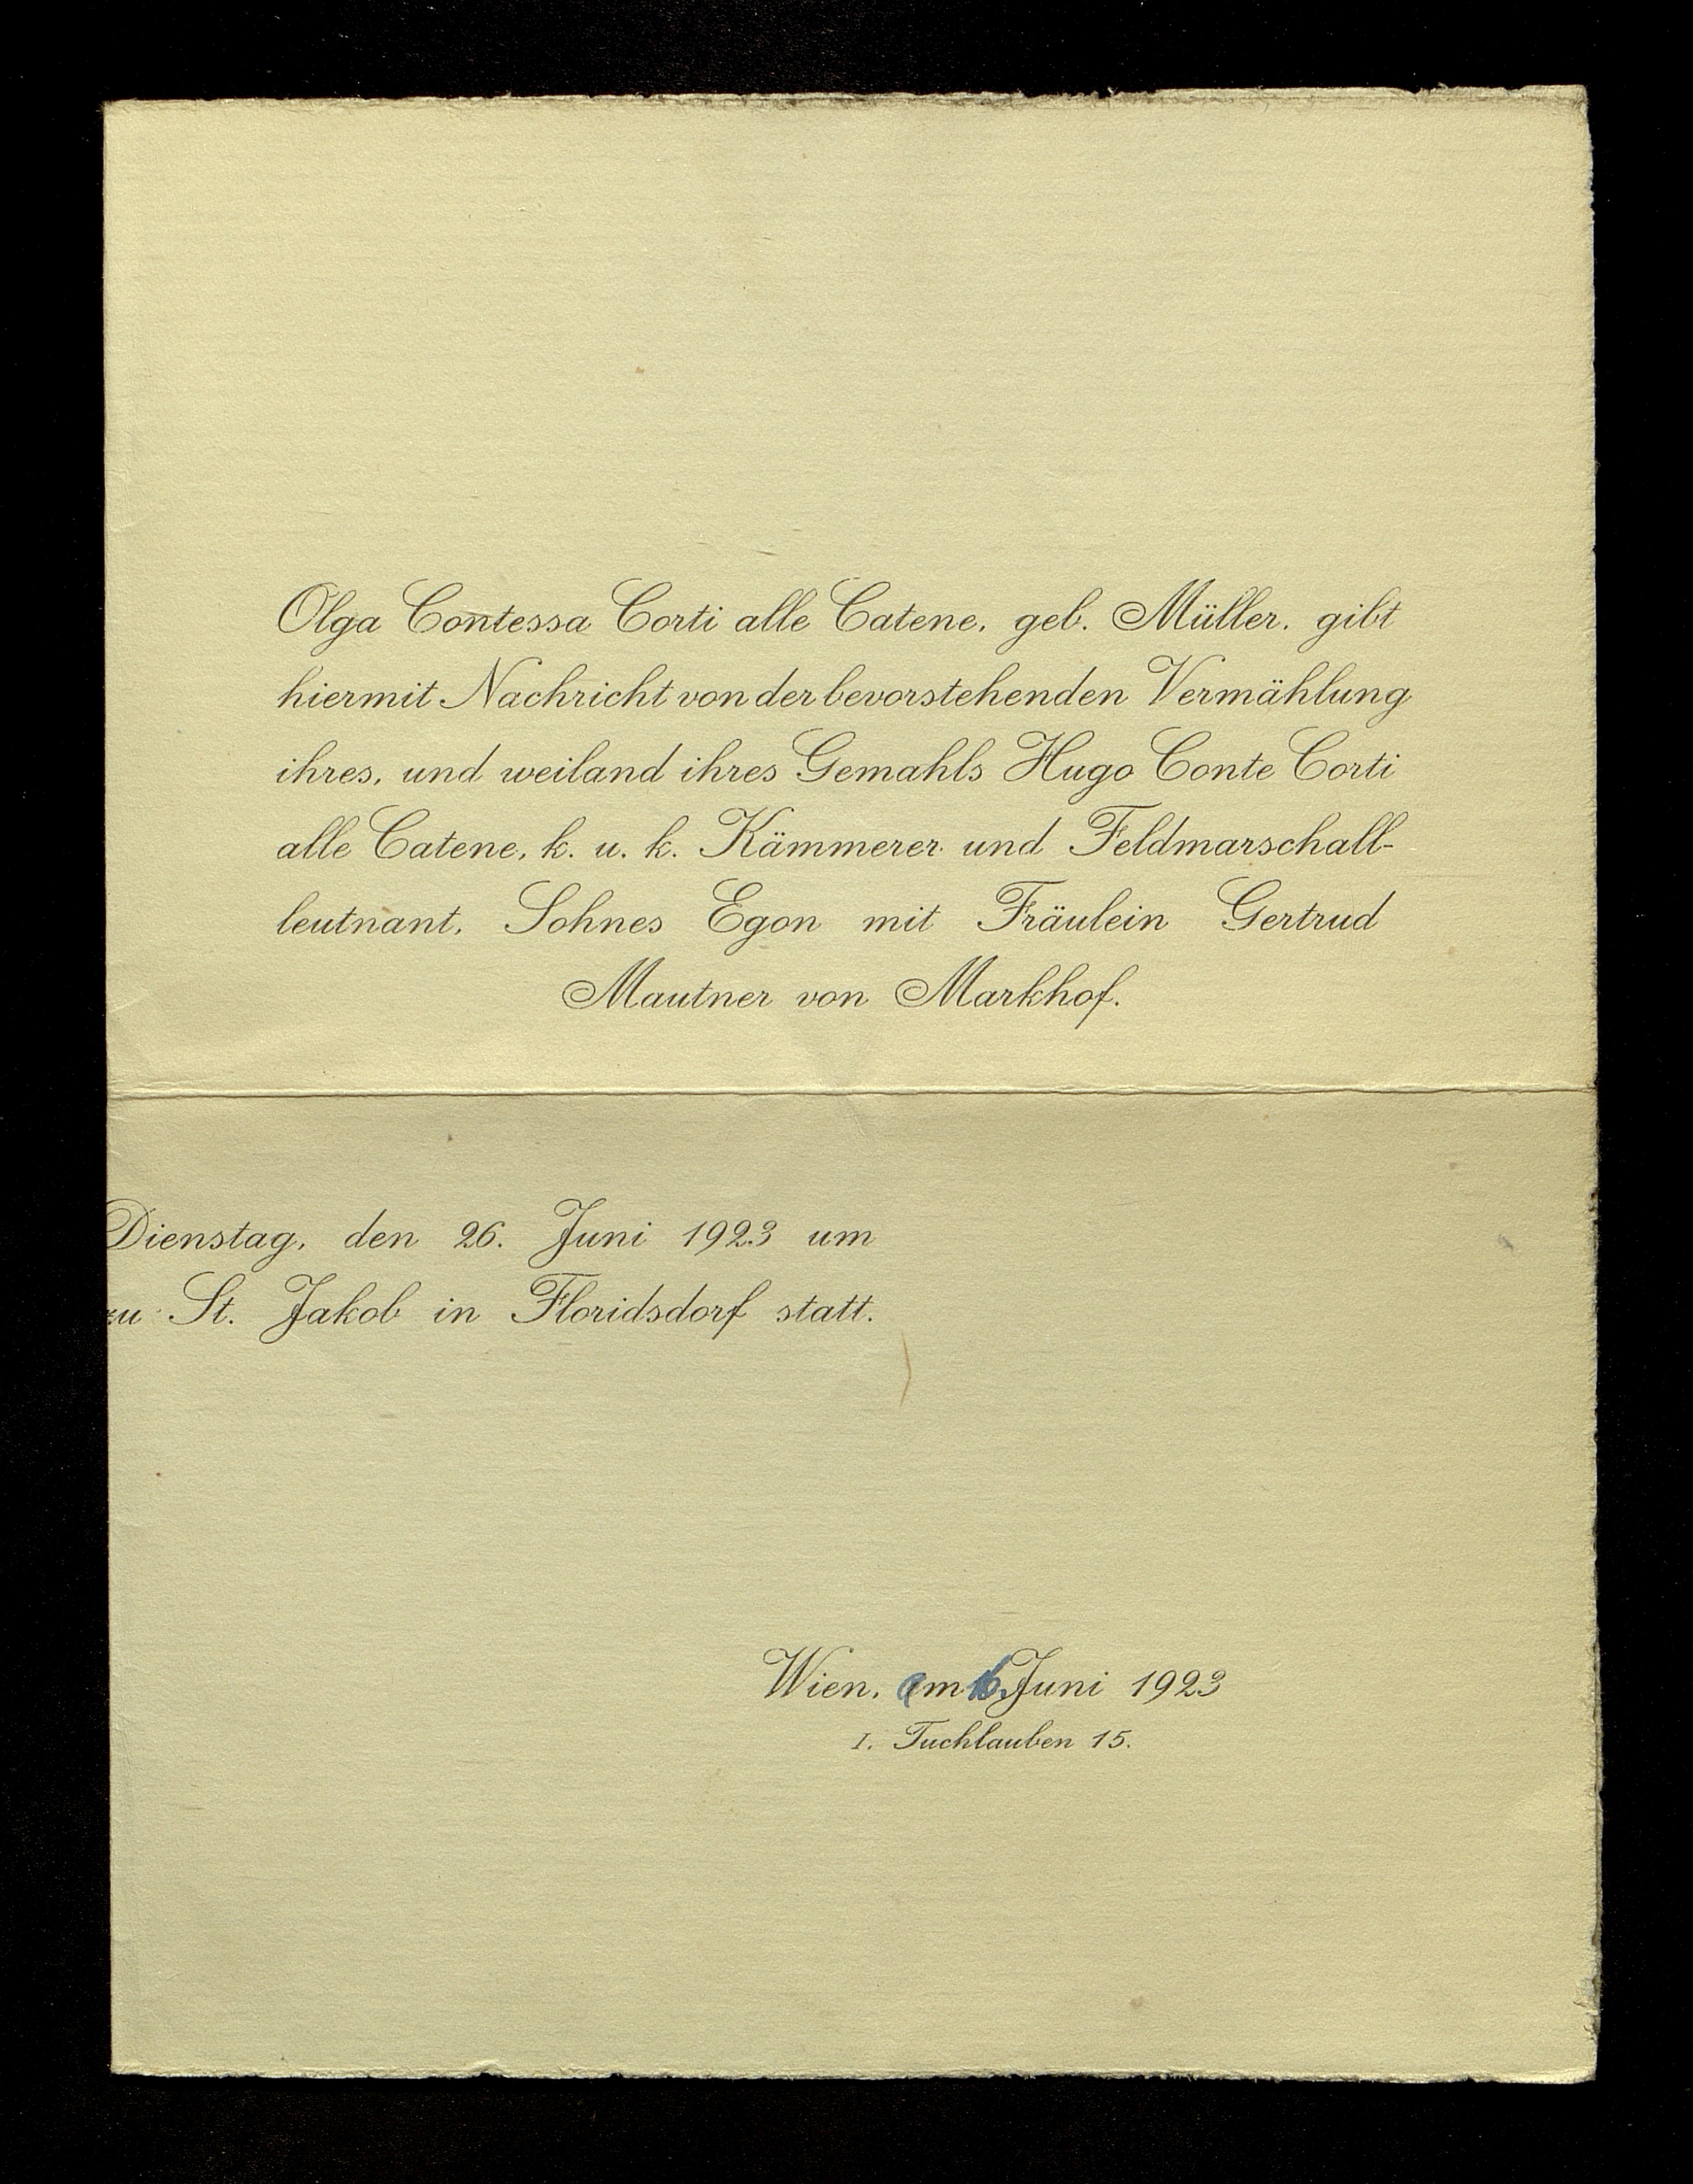 Olga Contessa Corti alle Catene, geb. Müller, gibt
hiermit Nachricht von der bevorstehenden Vermählung
ihres, und weiland ihres Gemahls Hugo Conte Corti
alle Catene, k. u. k. Kämmerer und Feldmarschall-
leutnant, Sohnes Egon mit Fräulein Gertrud
Mautner von Markhof.
Dienstag, den 26. Juni 1923 um
zu St. Jakob in Floridsdorf statt.
Wien, am 16. Juni 1923
I. Tuchlauben 15.